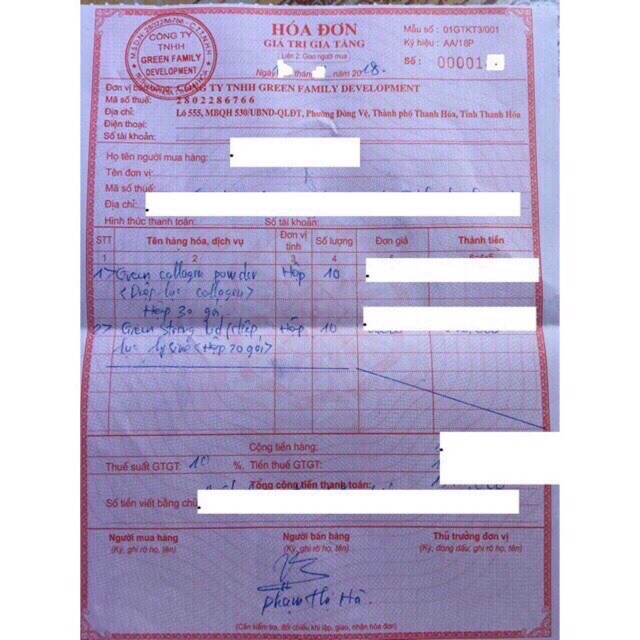 M.S.D.N: 2802286766 - C.T.T.N.H.H
CÔNG TY
TNHH
GREEN FAMILY
DEVELOPMENT
HÓA ĐƠN
GIÁ TRỊ GIA TĂNG
Liên 2: Giao người mua
Mẫu số : 01GTKT3/001
Ký hiệu: AA/18P
Số : 00001
Ngày thán năm 2018.
Đơn vị bán hàng: CÔNG TY TNHH GREEN FAMILY DEVELOPMENT
Mã số thuế: 2802286766
Địa chỉ: Lô 555, MBQH 530/UBND-QLĐT, Phường Đông Vệ, Thành phố Thanh Hóa, Tỉnh Thanh Hóa
Điện thoại:
Số tài khoản:
Họ tên người mua hàng:
Tên đơn vị:
Mã số thuế:
Địa chỉ:
Hình thức thanh toán: Số tài khoản:
STT Tên hàng hóa, dịch vụ Đơn vị tính Số lượng Đơn giá Thành tiền
1 2 3 4
1> Green collagen powder Hộp 10
<Diệp lục collagen>
Hộp 30 gói
2> Green strong kid (diệp Hộp 10
lục lysine <Hộp 20 gói>
Cộng tiền hàng:
Thuế suất GTGT: 10 %, Tiền thuế GTGT:
Tổng cộng tiền thanh toán:
Số tiền viết bằng chữ
Người mua hàng Người bán hàng Thủ trưởng đơn vị
(Ký, ghi rõ họ, tên) (Ký, ghi rõ họ, tên) (Ký, đóng dấu, ghi rõ họ, tên)
Phạm Thị Hà.
(Cần kiểm tra, đối chiếu khi lập, giao, nhận hóa đơn)